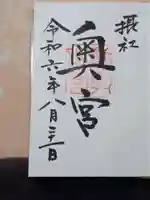 摂社
奥宮
令和六年八月三十一日